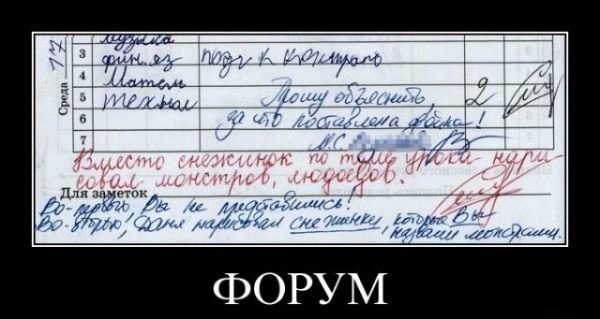 17
Среда
музыка
3 фин. яз подг к контраль
4 Матем
5 технол Прошу объяснить, 2
6 за что поставлена двойка!
7 М.С.
Вместо снежинок по теме урока нари-
совал монстров, людоедов.
Для заметок
Во-первых, Вы не представились!
Во-вторых, Даня нарисовал снежинки, которые Вы
назвали монстрами.
ФОРУМ